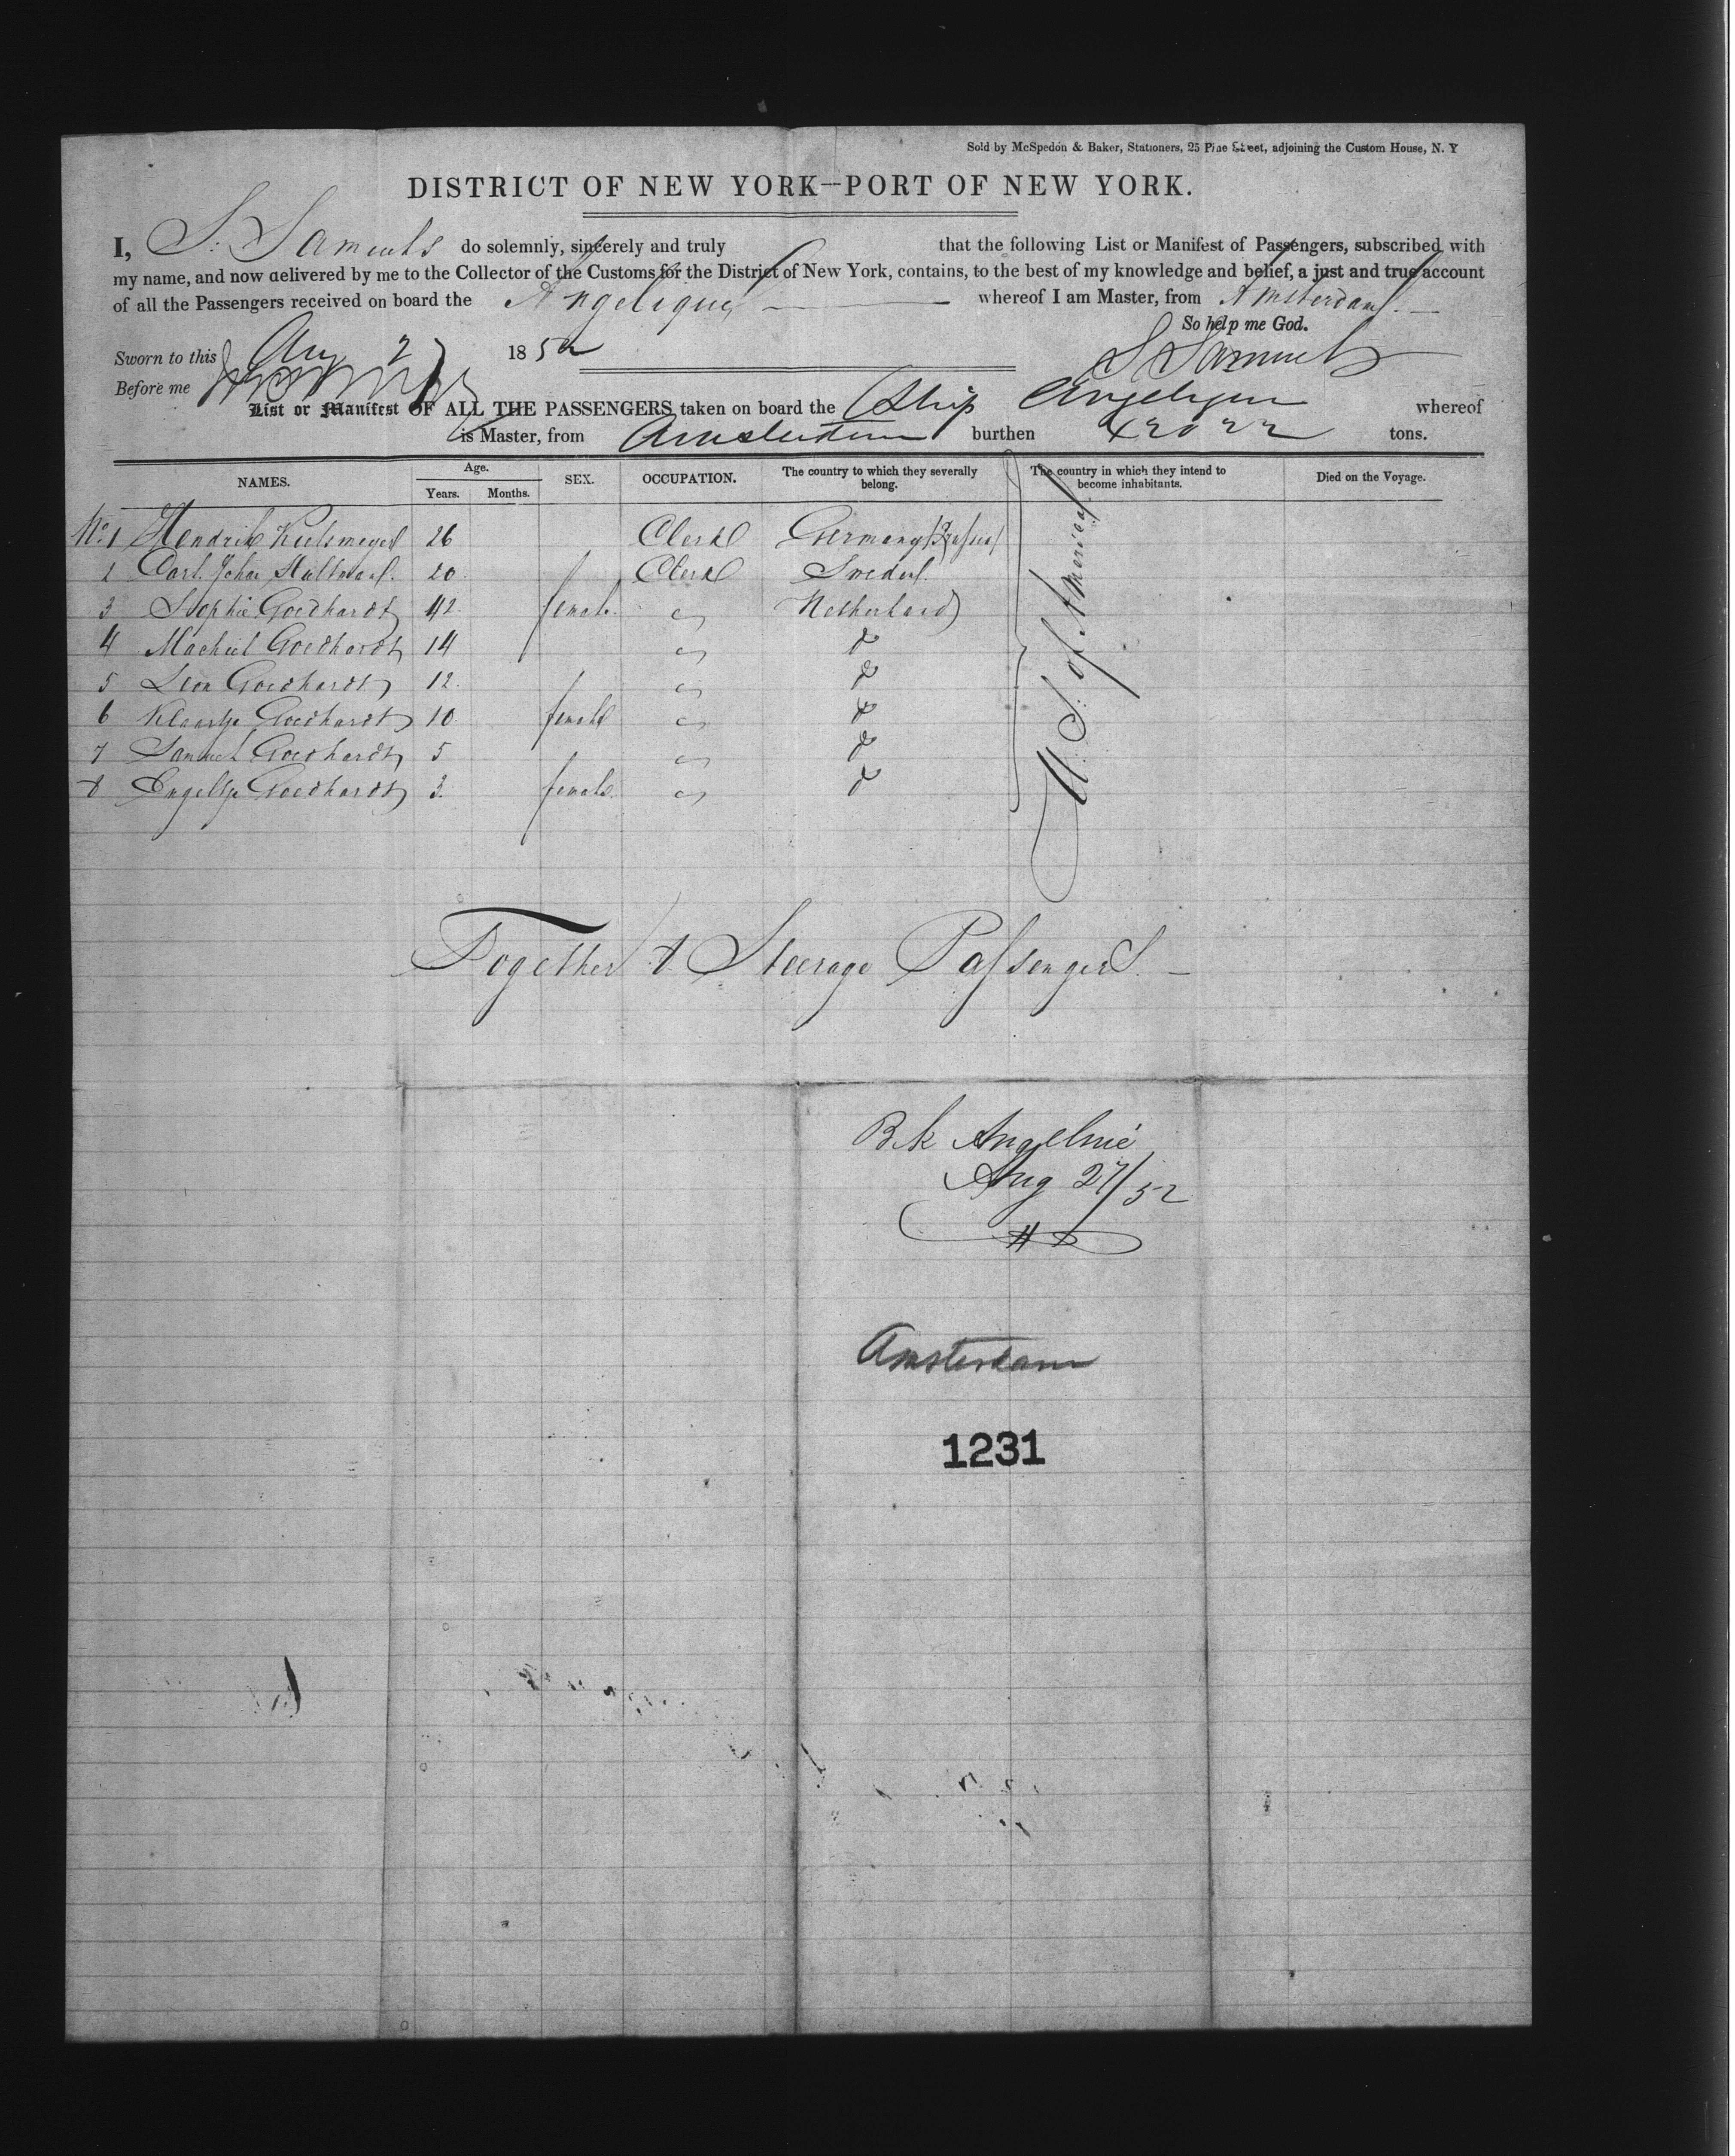 Sold by McSpedon & Baker, Stationers, 25 Pine Street, adjoining the Custom House, N. Y
DISTRICT OF NEW YORK—PORT OF NEW YORK.
I, S. Samuels do solemnly, sincerely and truly that the following List or Manifest of Passengers, subscribed with
my name, and now delivered by me to the Collector of the Customs for the District of New York, contains, to the best of my knowledge and belief, a just and true account
of all the Passengers received on board the Angelique whereof I am Master, from Amsterdam.
So help me God.
Sworn to this Aug 27 1852
S Samuels
Before me
List or Manifest OF ALL THE PASSENGERS taken on board the Ship Angelique whereof
is Master, from Amsterdam burthen 420 22 tons.
NAMES. Age. Years. Months. SEX. OCCUPATION. The country to which they severally belong. The country in which they intend to become inhabitants. Died on the Voyage.
No 1 Hendrik 26 Clerk Germany
2 Carl Johan 20 Clerk Sweden
3 Sophia Goedhardt 42 female Netherland
4 Machiel Goedhardt 14 do
5 Leon Goedhardt 12 do
6 Klaartje Goedhardt 10 female do
7 Samuel Goedhardt 5 do
8 Engeltje Goedhardt 3 female do
U. S. of America
Together 8 Steerage Passengers.
Bk Angelnie
Aug 27/52
Amsterdam
1231